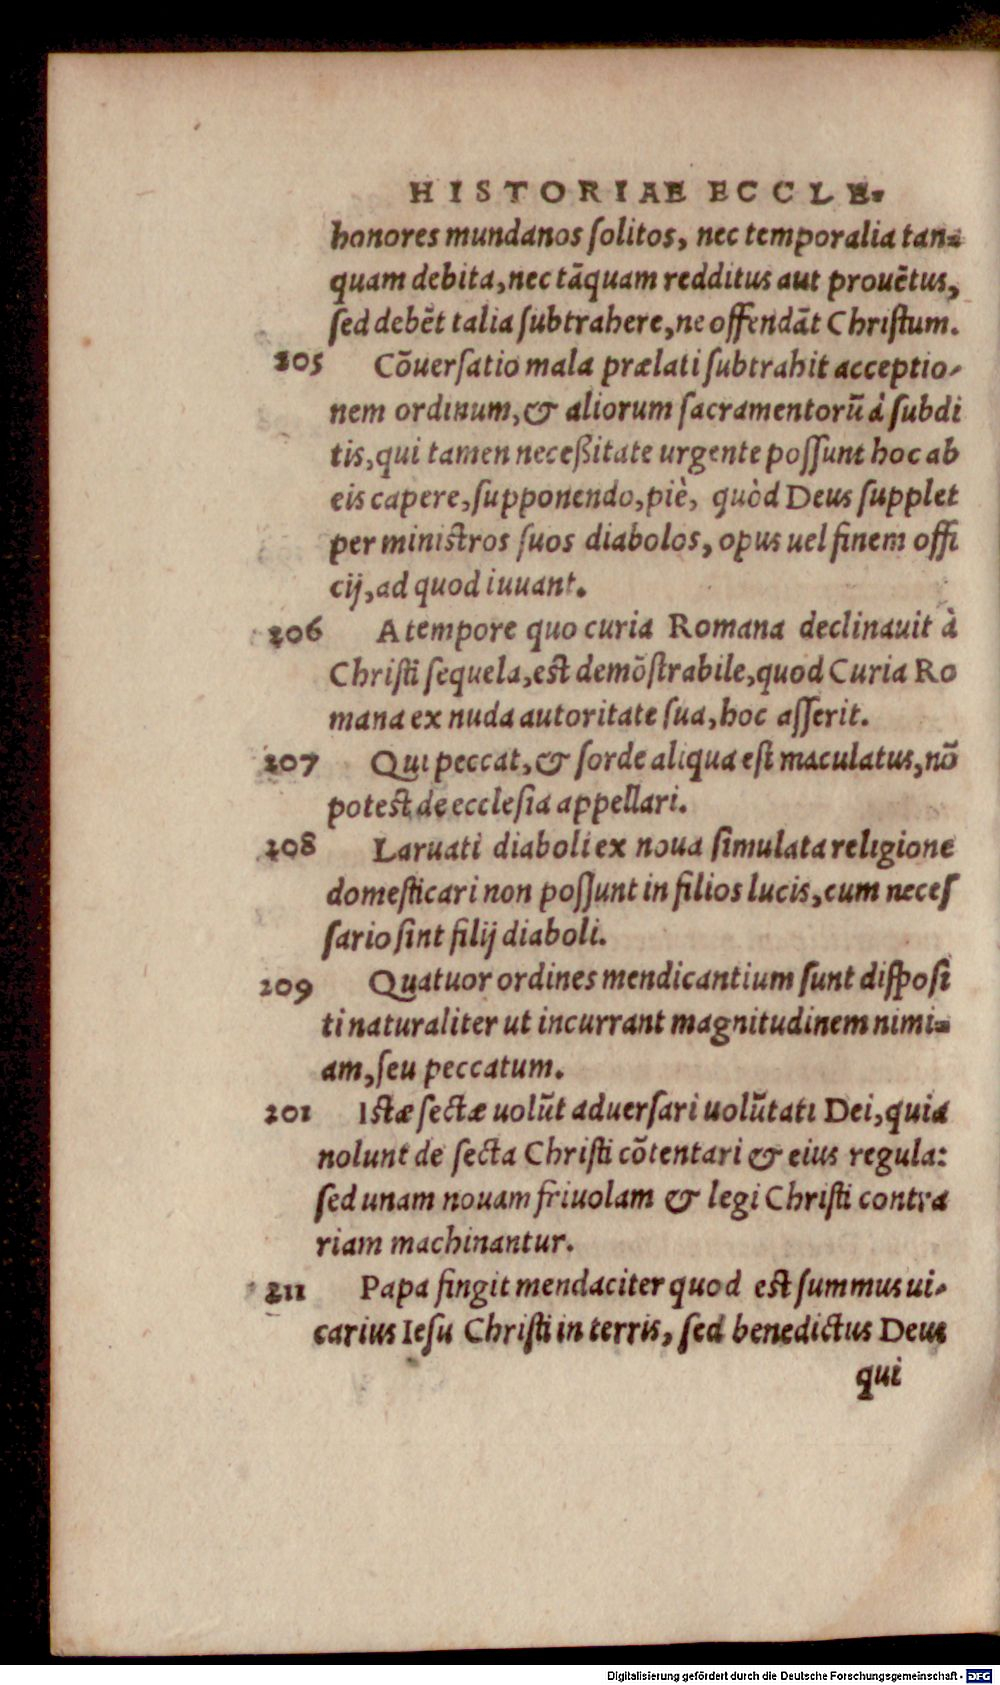 HISTORIAE ECCLE-
honores mundanos ſolitos, nec temporalia tan-
quam debita, nec tāquam redditus aut prouētus,
ſed debēt talia ſubtrahere, ne offendāt Chriſtum.
205 Cōuerſatio mala prælati ſubtrahit acceptio-
nem ordinum, & aliorum ſacramentorū à ſubdi
tis, qui tamen neceßitate urgente poſſunt hoc ab
eis capere, ſupponendo, piè, quòd Deus ſupplet
per miniſtros ſuos diabolos, opus uel finem offi
cij, ad quod iuuant.
206 A tempore quo curia Romana declinauit à
Chriſti ſequela, eſt demōſtrabile, quod Curia Ro
mana ex nuda autoritate ſua, hoc aſſerit.
207 Qui peccat, & ſorde aliqua eſt maculatus, nō
poteſt de eccleſia appellari.
208 Laruati diaboli ex noua ſimulata religione
domeſticari non poſſunt in filios lucis, cum neceſ
ſario ſint filij diaboli.
209 Quatuor ordines mendicantium ſunt diſpoſi
ti naturaliter ut incurrant magnitudinem nimi-
am, ſeu peccatum.
201 Iſtæ ſectæ uolūt aduerſari uolūtati Dei, quia
nolunt de ſecta Chriſti cōtentari & eius regula:
ſed unam nouam friuolam & legi Chriſti contra
riam machinantur.
211 Papa fingit mendaciter quod eſt ſummus ui-
carius Ieſu Chriſti in terris, ſed benedictus Deus
qui
Digitalisierung gefördert durch die Deutsche Forschungsgemeinschaft - DFG